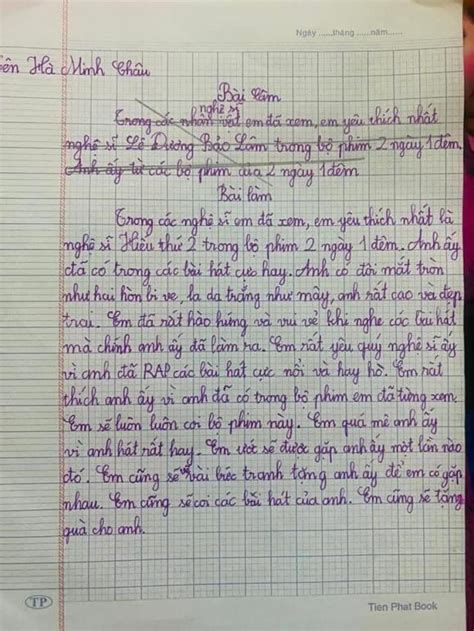 Ngày ......tháng ......năm......
ên Hà Minh Châu
Bài làm
nghệ sĩ
Trong các nhân vật em đã xem, em yêu thích nhất
nghệ sĩ Lê Dương Bảo Lâm trong bộ phim 2 ngày 1 đêm.
Anh ấy từ các bộ phim của 2 ngày 1 đêm
Bài làm
Trong các nghệ sĩ em đã xem, em yêu thích nhất là
nghệ sĩ Hiếu thứ 2 trong bộ phim 2 ngày 1 đêm. Anh ấy
đã có trong các bài hát cực hay. Anh có đôi mắt tròn
như hai hòn bi ve, la da trắng như mây, anh rất cao và đẹp
trai. Em đã rất hào hứng và vui vẻ khi nghe các bài hát
mà chính anh ấy đã làm ra. Em rất yêu quý nghệ sĩ ấy
vì anh đã RAP các bài hát cực nổi và hay hò. Em rất
thích anh ấy vì anh đã có trong bộ phim em đã từng xem.
Em sẽ luôn luôn coi bộ phim này. Em quá mê anh ấy
vì anh hát rất hay. Em ước sẽ được gặp anh ấy một lần nào
đó. Em cũng sẽ vài bức tranh tặng anh ấy để em có gặp
nhau. Em cũng sẽ coi các bài hát của anh. Em cũng sẽ tặng
quà cho anh.
TP
Tien Phat Book